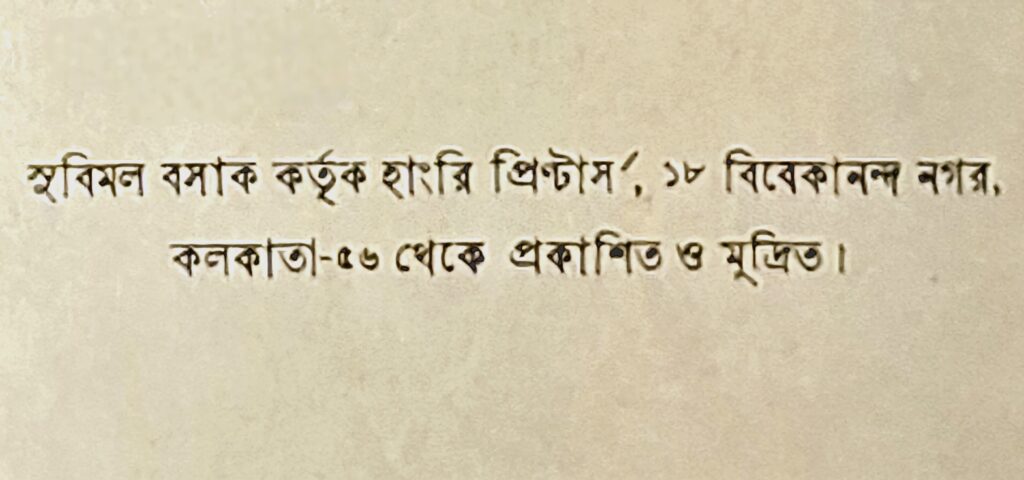 সুবিমল বসাক কর্তৃক হাংরি প্রিন্টার্স, ১৮ বিবেকানন্দ নগর,
কলকাতা-৫৬ থেকে প্রকাশিত ও মুদ্রিত।